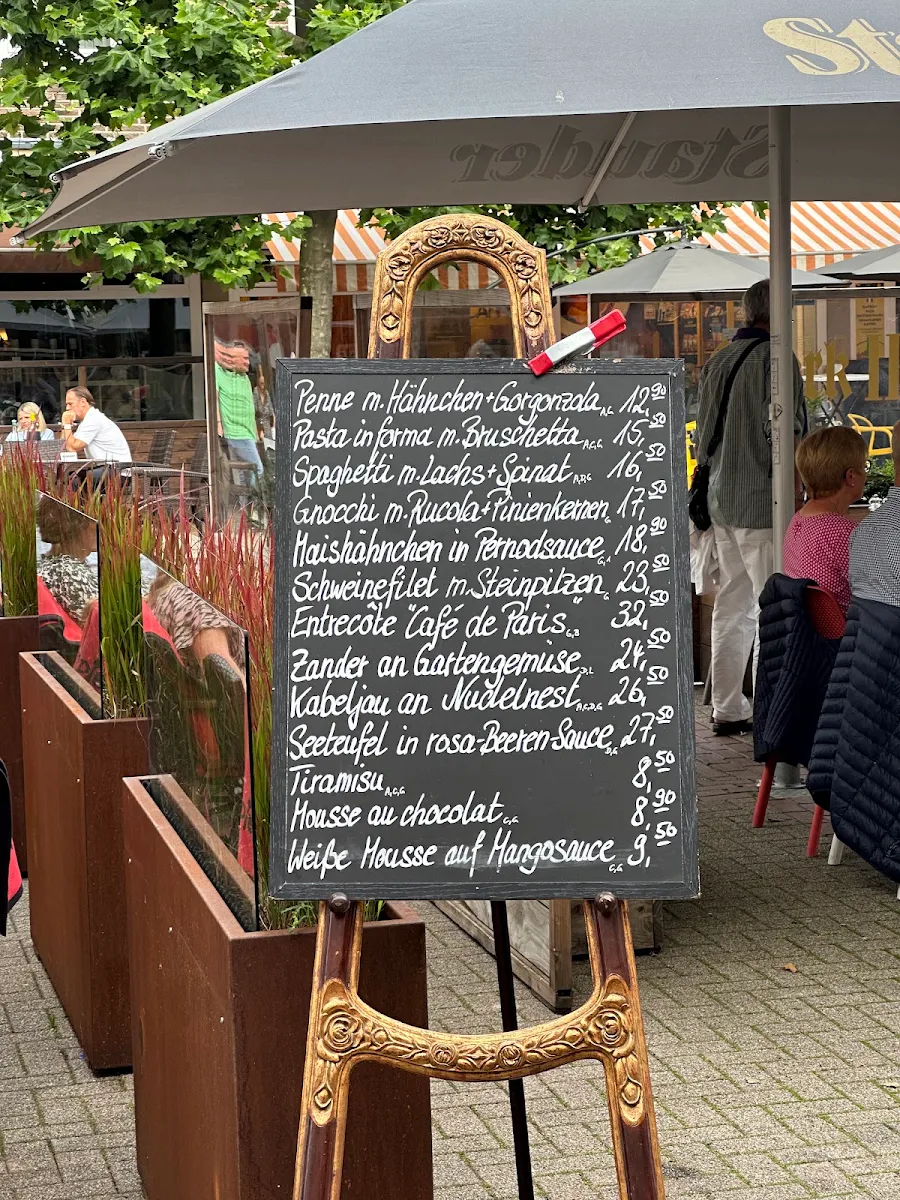 Sta
Stauder
Penne m. Hähnchen + Gorgonzola A,G 12,90
Pasta in forma m. Bruschetta A,C,G 15,50
Spaghetti m. Lachs + Spinat A,D,G 16,50
Gnocchi m. Rucola + Pinienkernen G 17,50
Maishähnchen in Pernodsauce G,A 18,90
Schweinefilet m. Steinpilzen G 23,50
Entrecôte "Café de Paris" G,J 32,50
Zander an Gartengemüse D,L 24,50
Kabeljau an Nudelnest A,C,D,G 26,50
Seeteufel in rosa-Beeren-Sauce D,G 27,50
Tiramisu A,C,G 8,50
Mousse au chocolat C,G 8,90
Weiße Mousse auf Mangosauce C,G 9,50